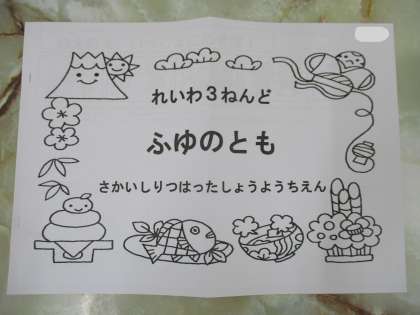 れいわ３ねんど
ふゆのとも
さかいしりつはったしょうようちえん